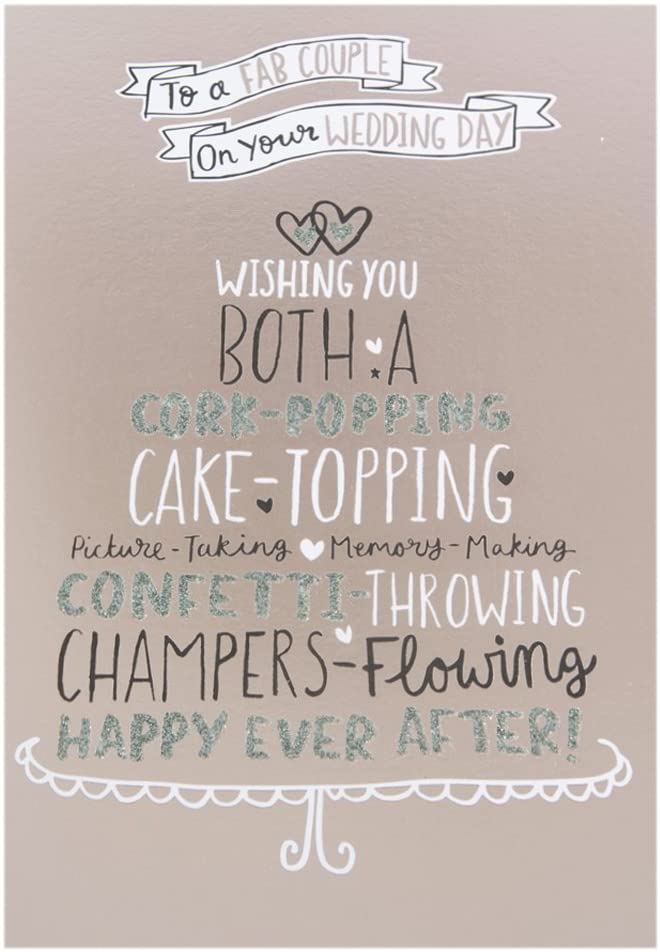 To a FAB COUPLE
On your WEDDING DAY
WISHING YOU
BOTH A
CORK-POPPING
CAKE-TOPPING
Picture-Taking Memory-Making
CONFETTI-THROWING
CHAMPERS-Flowing
HAPPY EVER AFTER!